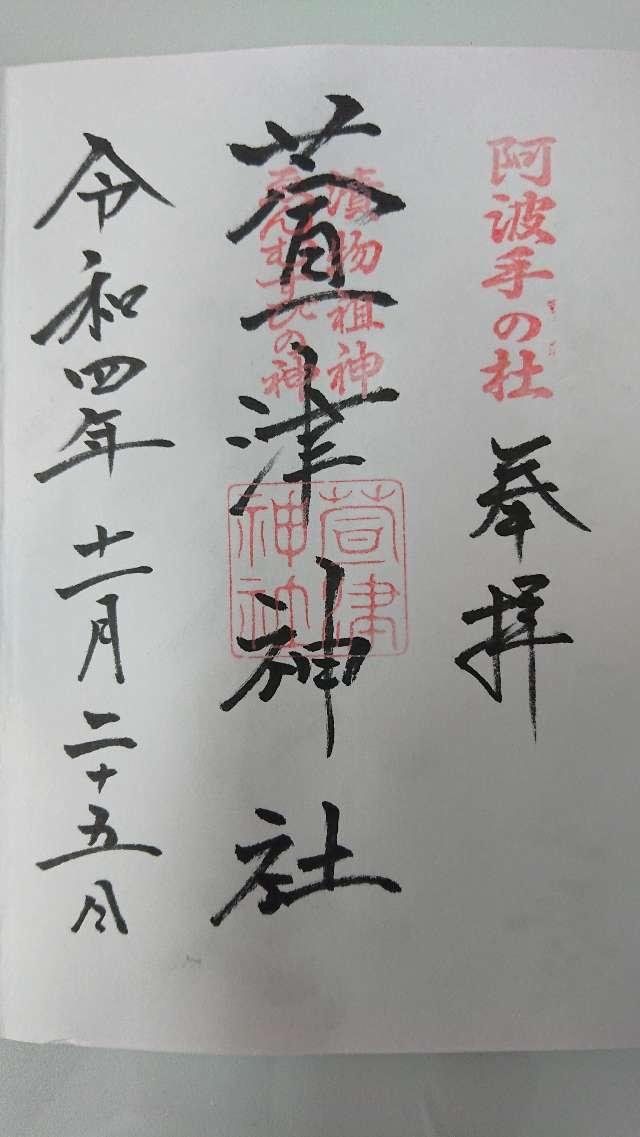 阿波手の杜
奉拝
漬物祖神
えんむすびの神
萱津神社
萱津
神社
令和四年 十一月 二十五日